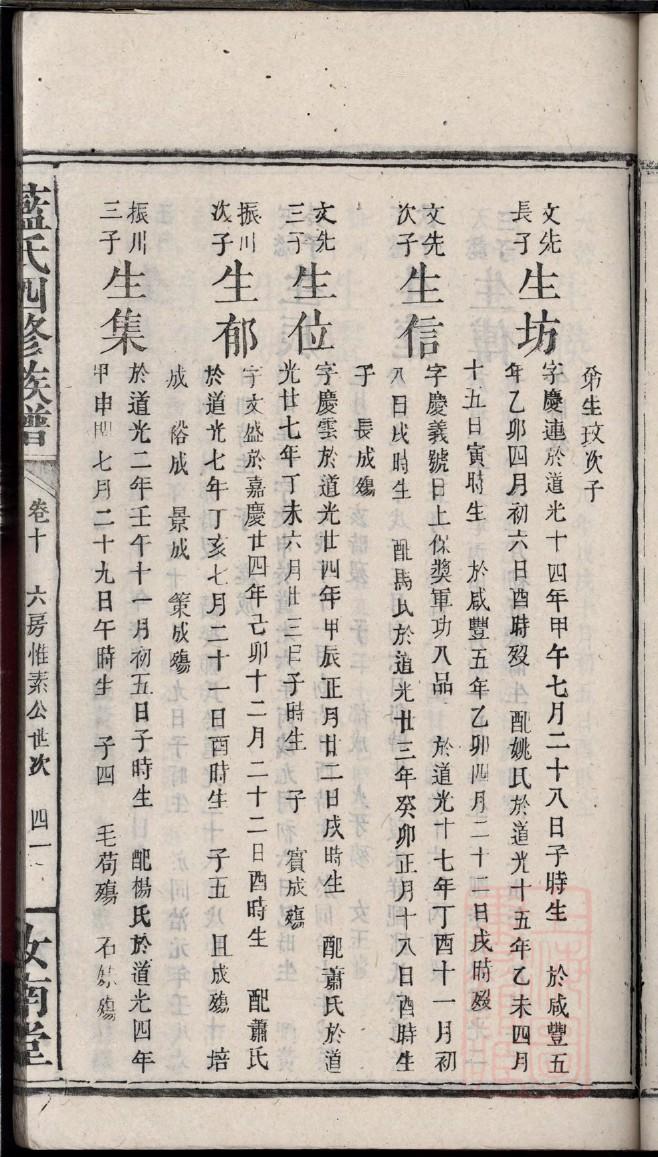 弟生玟次子
文先長子 生坊 字慶連於道光十四年甲午七月二十八日子時生 於咸豐五
年乙卯四月初六日酉時歿 配姚氏於道光十五年乙未四月
十五日寅時生 於咸豐五年乙卯四月二十二日戌時歿
文先次子 生信 字慶義號日上保獎軍功八品 於道光十七年丁酉十一月初
八日戌時生 配馬氏於道光廿三年癸卯正月十八日酉時生
子 長成殤
文先三子 生位 字慶雲於道光廿四年甲辰正月廿二日戌時生 配蕭氏於道
光廿七年丁未六月廿三日子時生 子 賓成殤
振川次子 生郁 字文盛於嘉慶廿四年己卯十二月二十二日酉時生 配蕭氏
於道光七年丁亥七月二十一日酉時生 子五 且成殤 培
成 裕成 景成 策成殤
振川三子 生集 於道光二年壬午十一月初五日子時生 配楊氏於道光四年
甲申閏七月二十九日午時生 子四 毛苟殤 石 殤
藍氏四修族譜 卷十 六房惟素公世次 四一 汝南堂